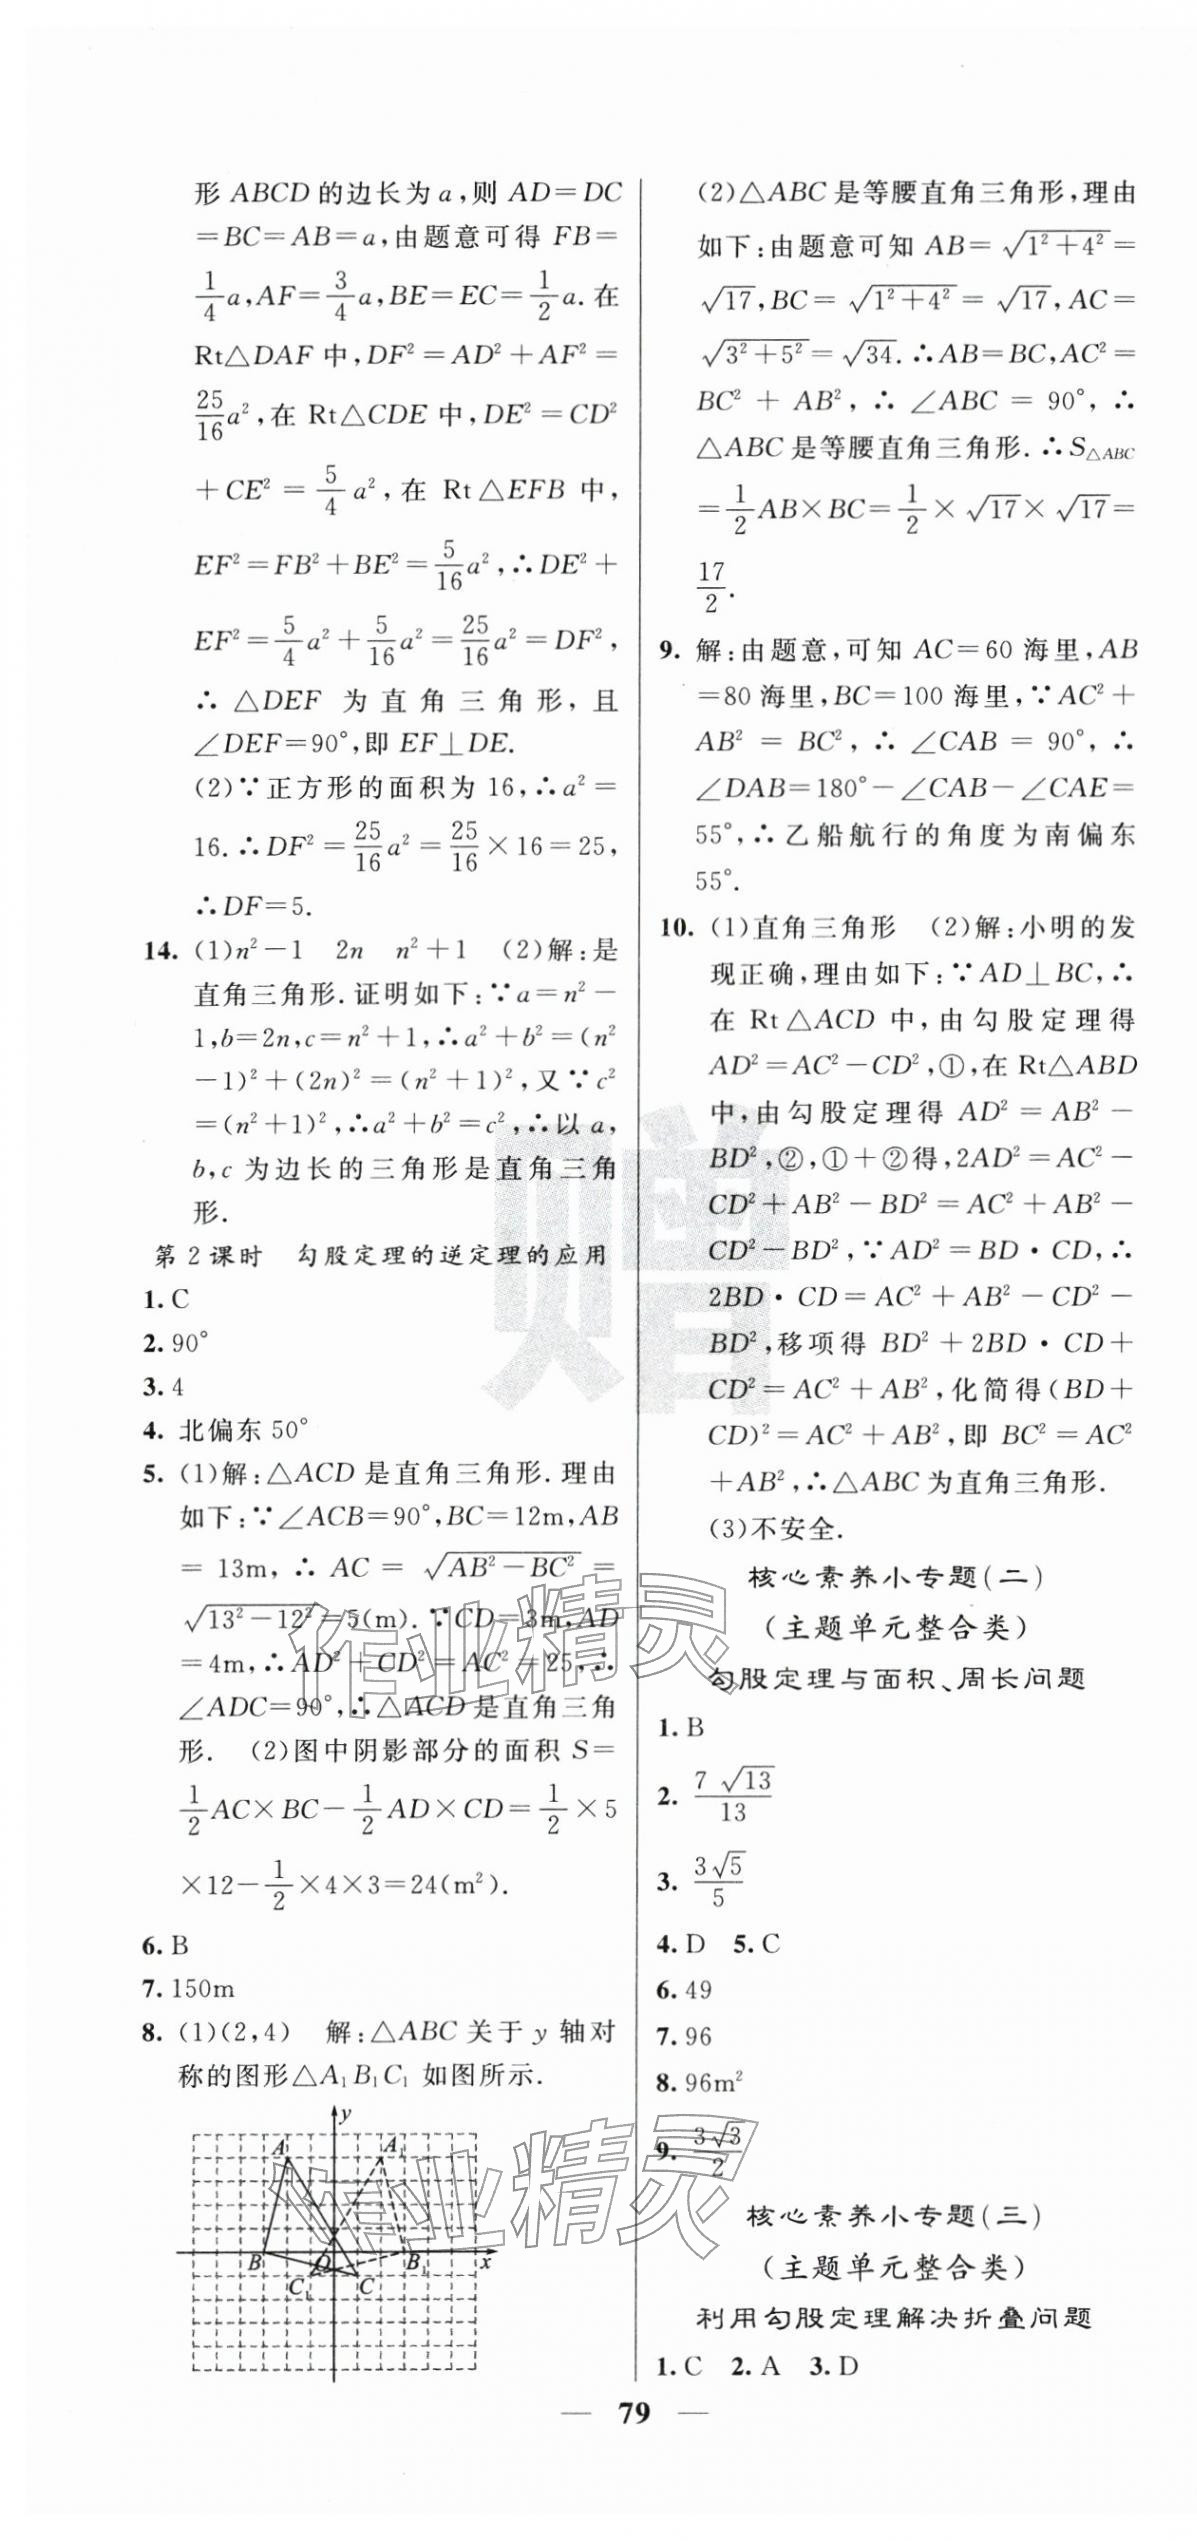 形 ABCD 的边长为 a,则 AD=DC
=BC=AB=a,由题意可得 FB=
1/4 a,AF=3/4 a,BE=EC=1/2 a.在
Rt△DAF 中,DF²=AD²+AF²=
25/16 a²,在 Rt△CDE 中,DE²=CD²
+CE²=5/4 a²,在 Rt△EFB 中,
EF²=FB²+BE²=5/16 a²,∴DE²+
EF²=5/4 a²+5/16 a²=25/16 a²=DF²,
∴△DEF 为直角三角形,且
∠DEF=90°,即 EF⊥DE.
(2)∵正方形的面积为 16,∴a²=
16.∴DF²=25/16 a²=25/16×16=25,
∴DF=5.
14. (1)n²-1 2n n²+1 (2)解:是
直角三角形.证明如下:∵a=n²-
1,b=2n,c=n²+1,∴a²+b²=(n²
-1)²+(2n)²=(n²+1)²,又∵c²
=(n²+1)²,∴a²+b²=c²,∴以 a,
b,c 为边长的三角形是直角三角
形.
第 2 课时 勾股定理的逆定理的应用
1. C
2. 90°
3. 4
4. 北偏东 50°
5. (1)解:△ACD 是直角三角形.理由
如下:∵∠ACB=90°,BC=12m,AB
=13m,∴AC=√(AB²-BC²)=
√(13²-12²)=5(m).∵CD=3m,AD
=4m,∴AD²+CD²=AC²=25,∴
∠ADC=90°,∴△ACD 是直角三角
形. (2)图中阴影部分的面积 S=
1/2 AC×BC-1/2 AD×CD=1/2×5
×12-1/2×4×3=24(m²).
6. B
7. 150m
8. (1)(2,4) 解:△ABC 关于 y 轴对
称的图形△A₁B₁C₁ 如图所示.
y
A A₁
B O B₁ x
C₁ C
(2)△ABC 是等腰直角三角形,理由
如下:由题意可知 AB=√(1²+4²)=
√17,BC=√(1²+4²)=√17,AC=
√(3²+5²)=√34.∴AB=BC,AC²=
BC²+AB²,∴∠ABC=90°,∴
△ABC 是等腰直角三角形.∴S△ABC
=1/2 AB×BC=1/2×√17×√17=
17/2.
9. 解:由题意,可知 AC=60 海里,AB
=80 海里,BC=100 海里,∵AC²+
AB²=BC²,∴∠CAB=90°,∴
∠DAB=180°-∠CAB-∠CAE=
55°,∴乙船航行的角度为南偏东
55°.
10. (1)直角三角形 (2)解:小明的发
现正确,理由如下:∵AD⊥BC,∴
在 Rt△ACD 中,由勾股定理得
AD²=AC²-CD²,①,在 Rt△ABD
中,由勾股定理得 AD²=AB²-
BD²,②,①+②得,2AD²=AC²-
CD²+AB²-BD²=AC²+AB²-
CD²-BD²,∵AD²=BD·CD,∴
2BD·CD=AC²+AB²-CD²-
BD²,移项得 BD²+2BD·CD+
CD²=AC²+AB²,化简得(BD+
CD)²=AC²+AB²,即 BC²=AC²
+AB²,∴△ABC 为直角三角形.
(3)不安全.
核心素养小专题(二)
(主题单元整合类)
勾股定理与面积、周长问题
1. B
2. 7√13/13
3. 3√5/5
4. D 5. C
6. 49
7. 96
8. 96m²
9. 3√3/2
核心素养小专题(三)
(主题单元整合类)
利用勾股定理解决折叠问题
1. C 2. A 3. D
— 79 —
赠
作业精灵
作业精灵